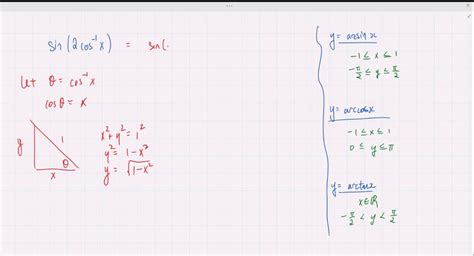 sin(2cos⁻¹x) = sin(.
Let θ = cos⁻¹x
cosθ = x
y
1
θ
x
x² + y² = 1²
y² = 1 - x²
y = √(1-x²)
y = arcsin x
-1 ≤ x ≤ 1
-π/2 ≤ y ≤ π/2
y = arccos x
-1 ≤ x ≤ 1
0 ≤ y ≤ π
y = arctan x
x∈ℝ
-π/2 < y < π/2